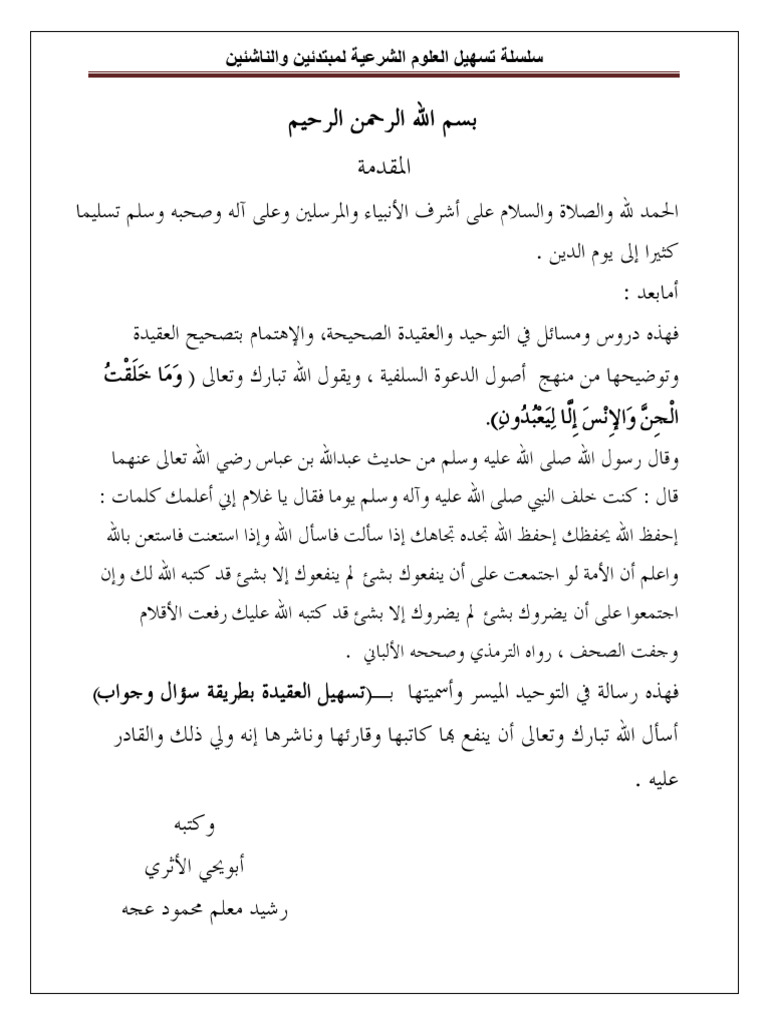 سلسلة تسهيل العلوم الشرعية لمبتدئين والناشئين
بسم الله الرحمن الرحيم
المقدمة
الحمد لله والصلاة والسلام على أشرف الأنبياء والمرسلين وعلى آله وصحبه وسلم تسليما
كثيرا إلى يوم الدين .
أمابعد :
فهذه دروس ومسائل في التوحيد والعقيدة الصحيحة، والإهتمام بتصحيح العقيدة
وتوضيحها من منهج أصول الدعوة السلفية ، ويقول الله تبارك وتعالى ( وَمَا خَلَقْتُ
الْجِنَّ وَالإِنْسَ إِلَّا لِيَعْبُدُونِ).
وقال رسول الله صلى الله عليه وسلم من حديث عبدالله بن عباس رضي الله تعالى عنهما
قال : كنت خلف النبي صلى الله عليه وآله وسلم يوما فقال يا غلام إني أعلمك كلمات :
إحفظ الله يحفظك إحفظ الله تجده تجاهك إذا سألت فاسأل الله وإذا استعنت فاستعن بالله
واعلم أن الأمة لو اجتمعت على أن ينفعوك بشئ لم ينفعوك إلا بشئ قد كتبه الله لك وإن
اجتمعوا على أن يضروك بشئ لم يضروك إلا بشئ قد كتبه الله عليك رفعت الأقلام
وجفت الصحف ، رواه الترمذي وصححه الألباني .
فهذه رسالة في التوحيد الميسر وأسميتها بــ(تسهيل العقيدة بطريقة سؤال وجواب)
أسأل الله تبارك وتعالى أن ينفع بها كاتبها وقارئها وناشرها إنه ولي ذلك والقادر
عليه .
وكتبه
أبويحي الأثري
رشيد معلم محمود عجه